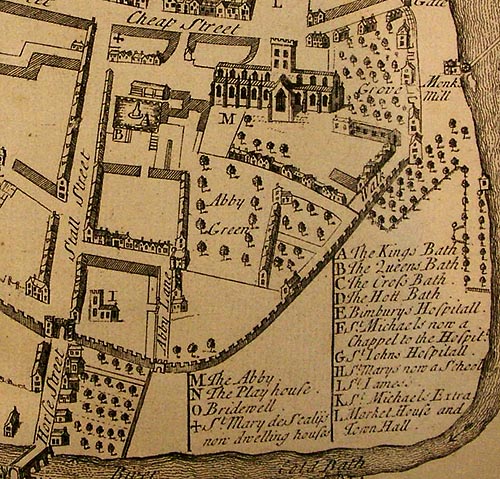 L
Gate
Cheap Street
Grove
Monks
Mill
A
B
M
Stall Street
Abby
Green
Walks
Abby Lane
I
Horse Street
A The Kings Bath
B The Queens Bath
C The Cross Bath
D The Hott Bath
E Bimburys Hospitall
F St. Michaels now a
Chapel to the Hospit:
G St. Iohns Hospitall
H St. Marys now a School
I St. Iames
K St. Michaels Extra
L Market House and
Town Hall
M The Abby
N The Playhouse
O Bridewell
+ St. Mary de Stalis
now dwelling house
Cold Bath